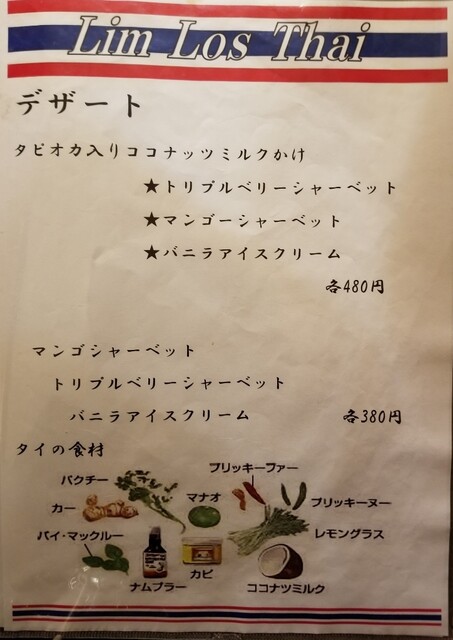 Lim Los Thai
デザート
タピオカ入りココナッツミルクかけ
★トリプルベリーシャーベット
★マンゴーシャーベット
★バニラアイスクリーム
各480円
マンゴシャーベット
トリプルベリーシャーベット
バニラアイスクリーム 各380円
タイの食材
パクチー
プリッキーファー
カー
マナオ
プリッキーヌー
バイ・マックルー
レモングラス
カピ
ナムプラー
ココナツミルク